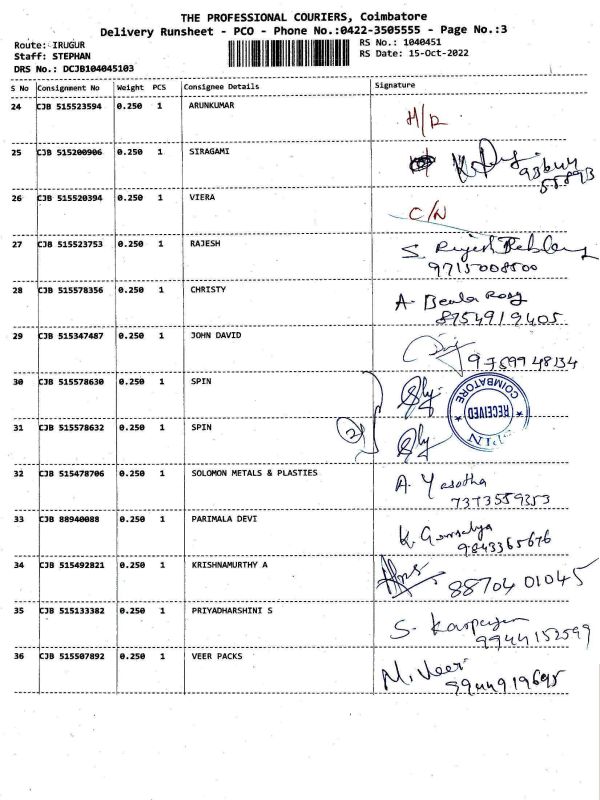 THE PROFESSIONAL COURIERS, Coimbatore
Delivery Runsheet - PCO - Phone No.:0422-3505555 - Page No.:3
Route: IRUGUR
RS No.: 1040451
Staff: STEPHAN
RS Date: 15-Oct-2022
DRS No.: DCJB104045103
S No Consignment No Weight PCS Consignee Details Signature
24 CJB 515523594 0.250 1 ARUNKUMAR H/R
25 CJB 515200906 0.250 1 SIRAGAMI
26 CJB 515520394 0.250 1 VIERA C/N
27 CJB 515523753 0.250 1 RAJESH S. Rajesh
9715008500
28 CJB 515578356 0.250 1 CHRISTY A. Beula Rosy
8754919405
29 CJB 515347487 0.250 1 JOHN DAVID
9759948134
30 CJB 515578630 0.250 1 SPIN
COIMBATORE
RECEIVED
31 CJB 515578632 0.250 1 SPIN
2
32 CJB 515478706 0.250 1 SOLOMON METALS & PLASTIES A. Yasotha
7373559353
33 CJB 88940088 0.250 1 PARIMALA DEVI K.
9843365676
34 CJB 515492821 0.250 1 KRISHNAMURTHY A 88704 01045
35 CJB 515133382 0.250 1 PRIYADHARSHINI S S.
9944152599
36 CJB 515507892 0.250 1 VEER PACKS M. Veer
9944919695